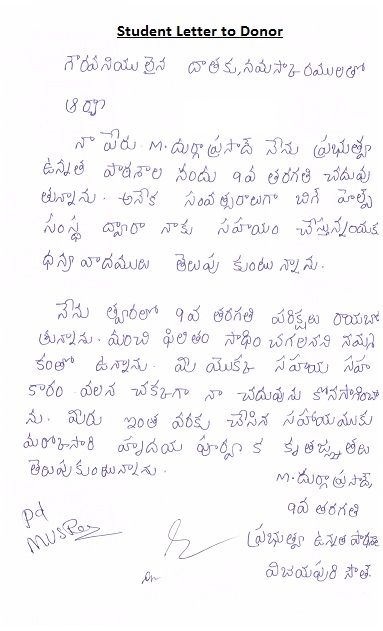 Student Letter to Donor
గౌరవనీయులైన దాతకు, నమస్కారములతో
ఆర్యా
నా పేరు M. దుర్గాప్రసాద్ నేను ప్రభుత్వ
ఉన్నత పాఠశాల నందు 9వ తరగతి చదువు
తున్నాను. అనేక సంవత్సరాలుగా బిగ్ హెల్ప్
సంస్థ ద్వారా నాకు సహాయం చేస్తున్నందుక
ధన్యవాదములు తెలుపు కుంటున్నాను.
నేను త్వరలో 9వ తరగతి పరిక్షలు రాయబో
తున్నాను. మంచి ఫలితం సాధించగలనని నమ్మ
కంతో ఉన్నాను. మీ యొక్క సహాయ సహ
కారం వలన చక్కగా నా చదువును కొనసాగించా
ను. మీరు ఇంత వరకు చేసిన సహాయముకు
మరొకసారి హృదయ పూర్వక కృతజ్ఞతలు
తెలుపుకుంటున్నాను.
M. దుర్గాప్రసాద్,
9వ తరగతి
ప్రభుత్వ ఉన్నత పాఠశాల
విజయపురి సౌత్.